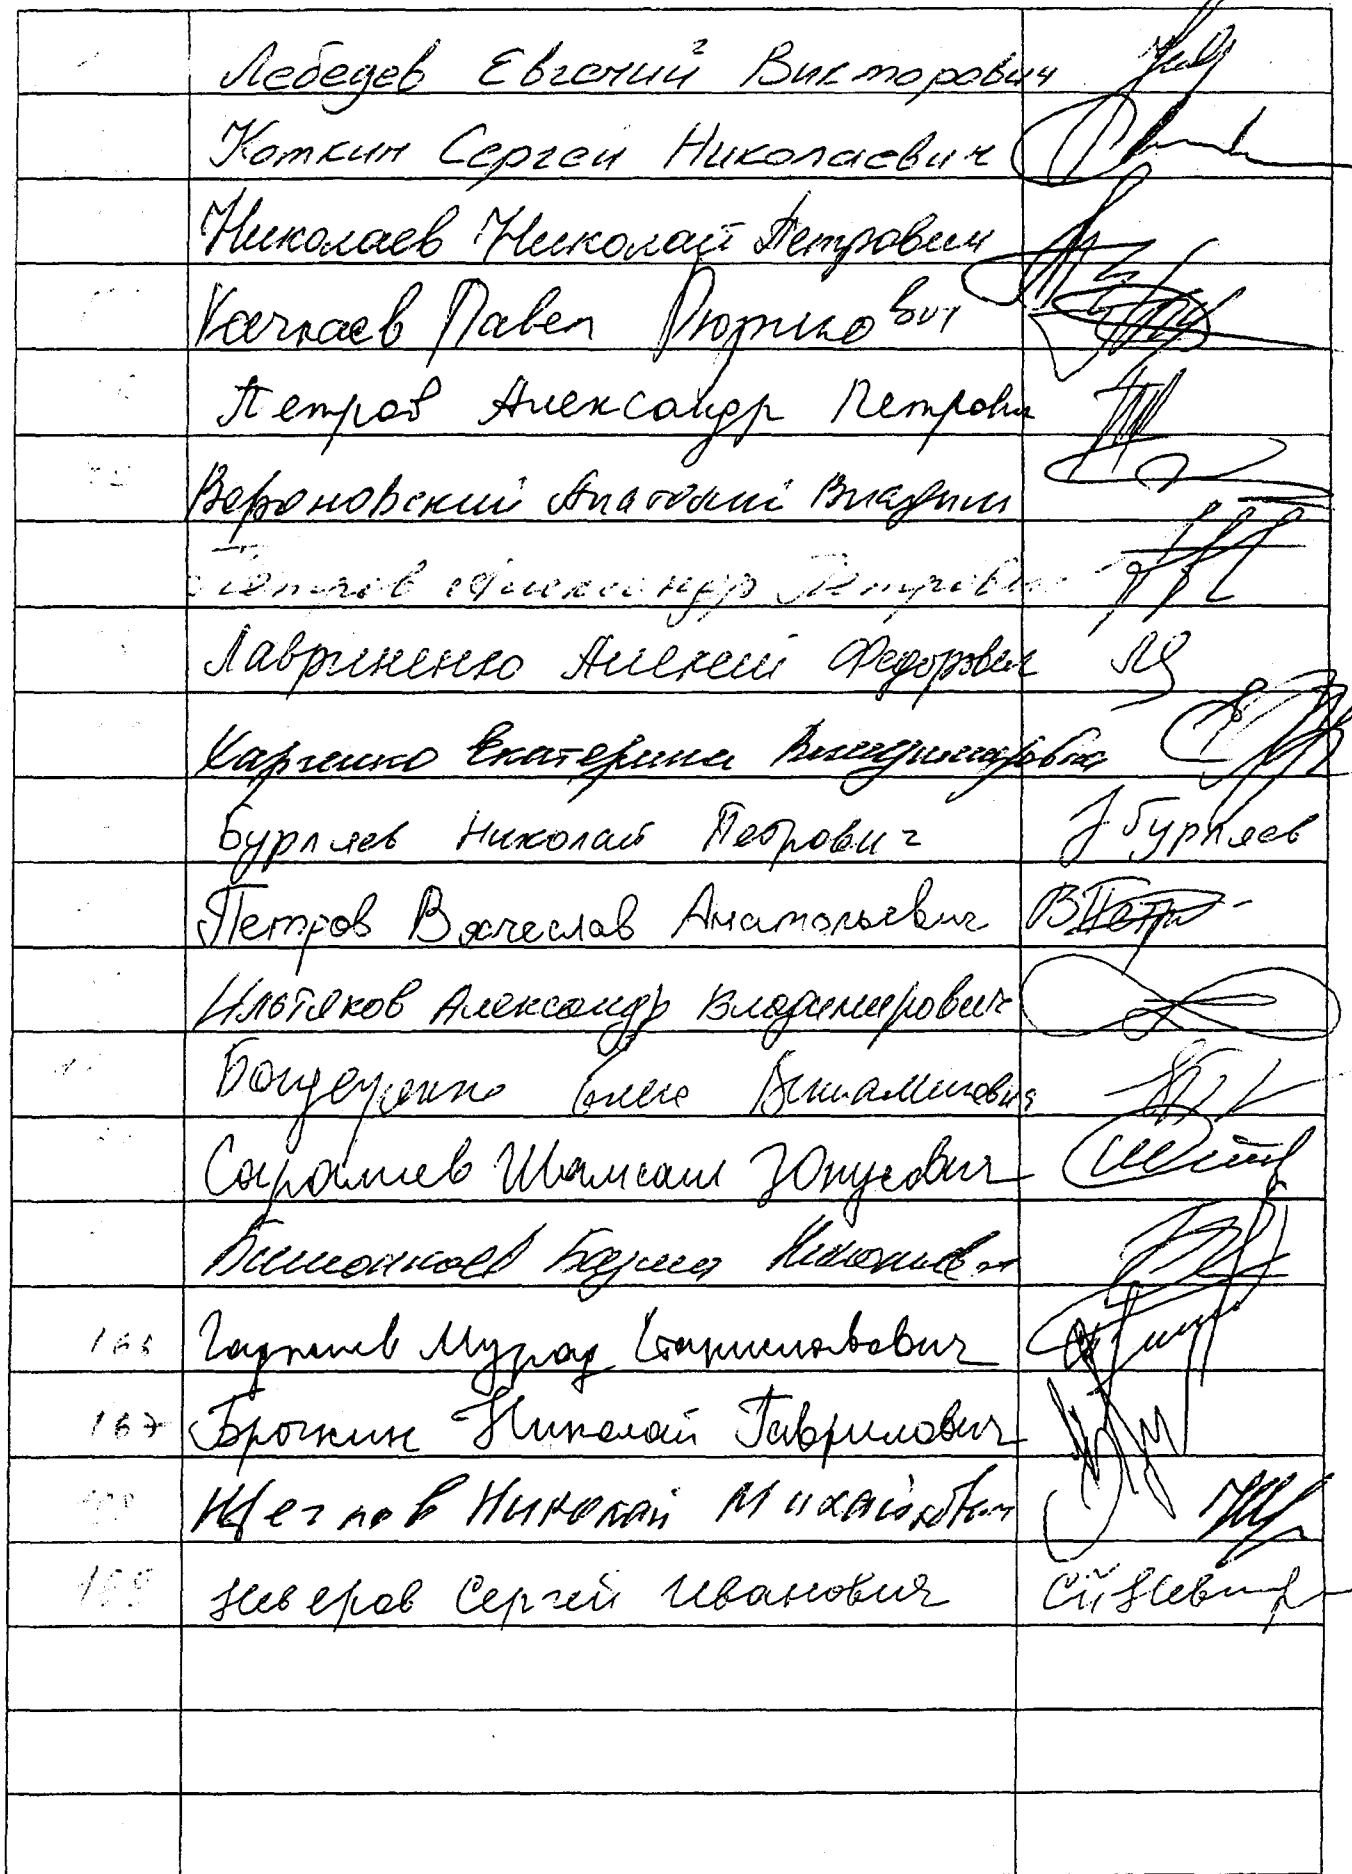 Лебедев Евгений Викторович
Коткин Сергей Николаевич
Николаев Николай Петрович
Качкаев Павел Рюрикович
Петров Александр Петрович
Вороновский Анатолий Владим
Петров Александр Петрович
Лавриненко Алексей Федорович
Харченко Екатерина Владимировна
Бурляев Николай Петрович Бурляев
Петров Вячеслав Анатольевич
Ильтяков Александр Владимирович
Бондаренко Елена Вениаминовна
Саралиев Шамсаил Юнусович
Николаев
166 Гаджиев Мурад Станиславович
167 Брыкин Николай Гаврилович
Щеглов Николай Михайлович
169 Неверов Сергей Иванович